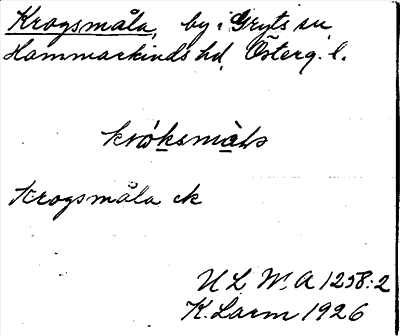 Krogsmåla, by i Gryts sn
Hammarkinds hd, Österg. l.
Krogsmåla ck
ULMA 1258:2
K. Larm 1926